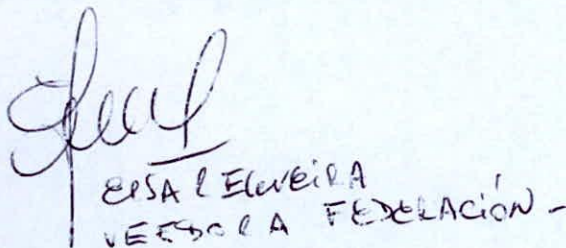 ELSA REGUEIRA
VEEDORA FEDERACIÓN -